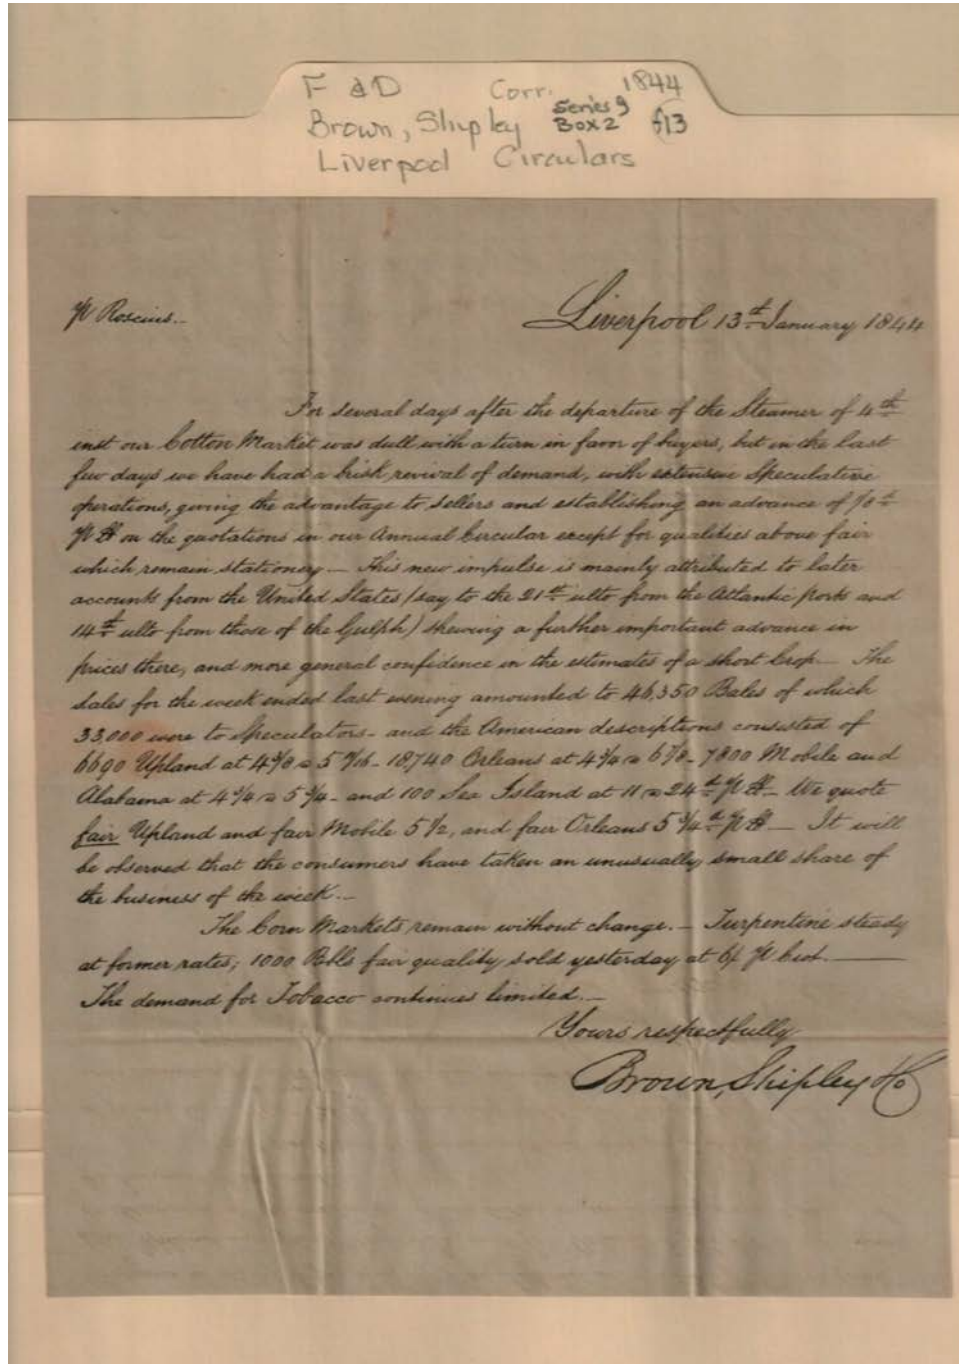 F & D Corr. 1844
Brown, Shipley Series 9 Box 2 f13
Liverpool Circulars
℔ Roscius.—
Liverpool 13th January 1844
For several days after the departure of the Steamer of 4th
inst our Cotton Market was dull with a turn in favor of buyers, but in the last
few days we have had a brisk revival of demand, with extensive Speculative
operations, giving the advantage to Sellers and establishing an advance of
on the quotations in our Annual Circular except for qualities above fair
which remain stationery — This new impulse is mainly attributed to later
accounts from the United States (say to the 21st ulto from the Atlantic ports and
14th ulto from those of the Gulph) shewing a further important advance in
prices there, and more general confidence in the estimates of a short Crop — The
Sales for the week ended last evening amounted to 46,350 Bales of which
33,000 were to Speculators — and the American descriptions consisted of
6690 Upland at 18,740 Orleans at 7800 Mobile and
Alabama at and 100 Sea Island at 11 a 24d ℔ lb — We quote
fair Upland and fair Mobile 5 1/2, and fair Orleans 5 3/4d ℔ lb — It will
be observed that the consumers have taken an unusually small share of
the business of the week.—
The Corn Markets remain without change. — Turpentine steady
at former rates; 1000 Bbls fair quality sold yesterday at 6/.
The demand for Tobacco continues limited.—
Yours respectfully
Brown, Shipley & Co